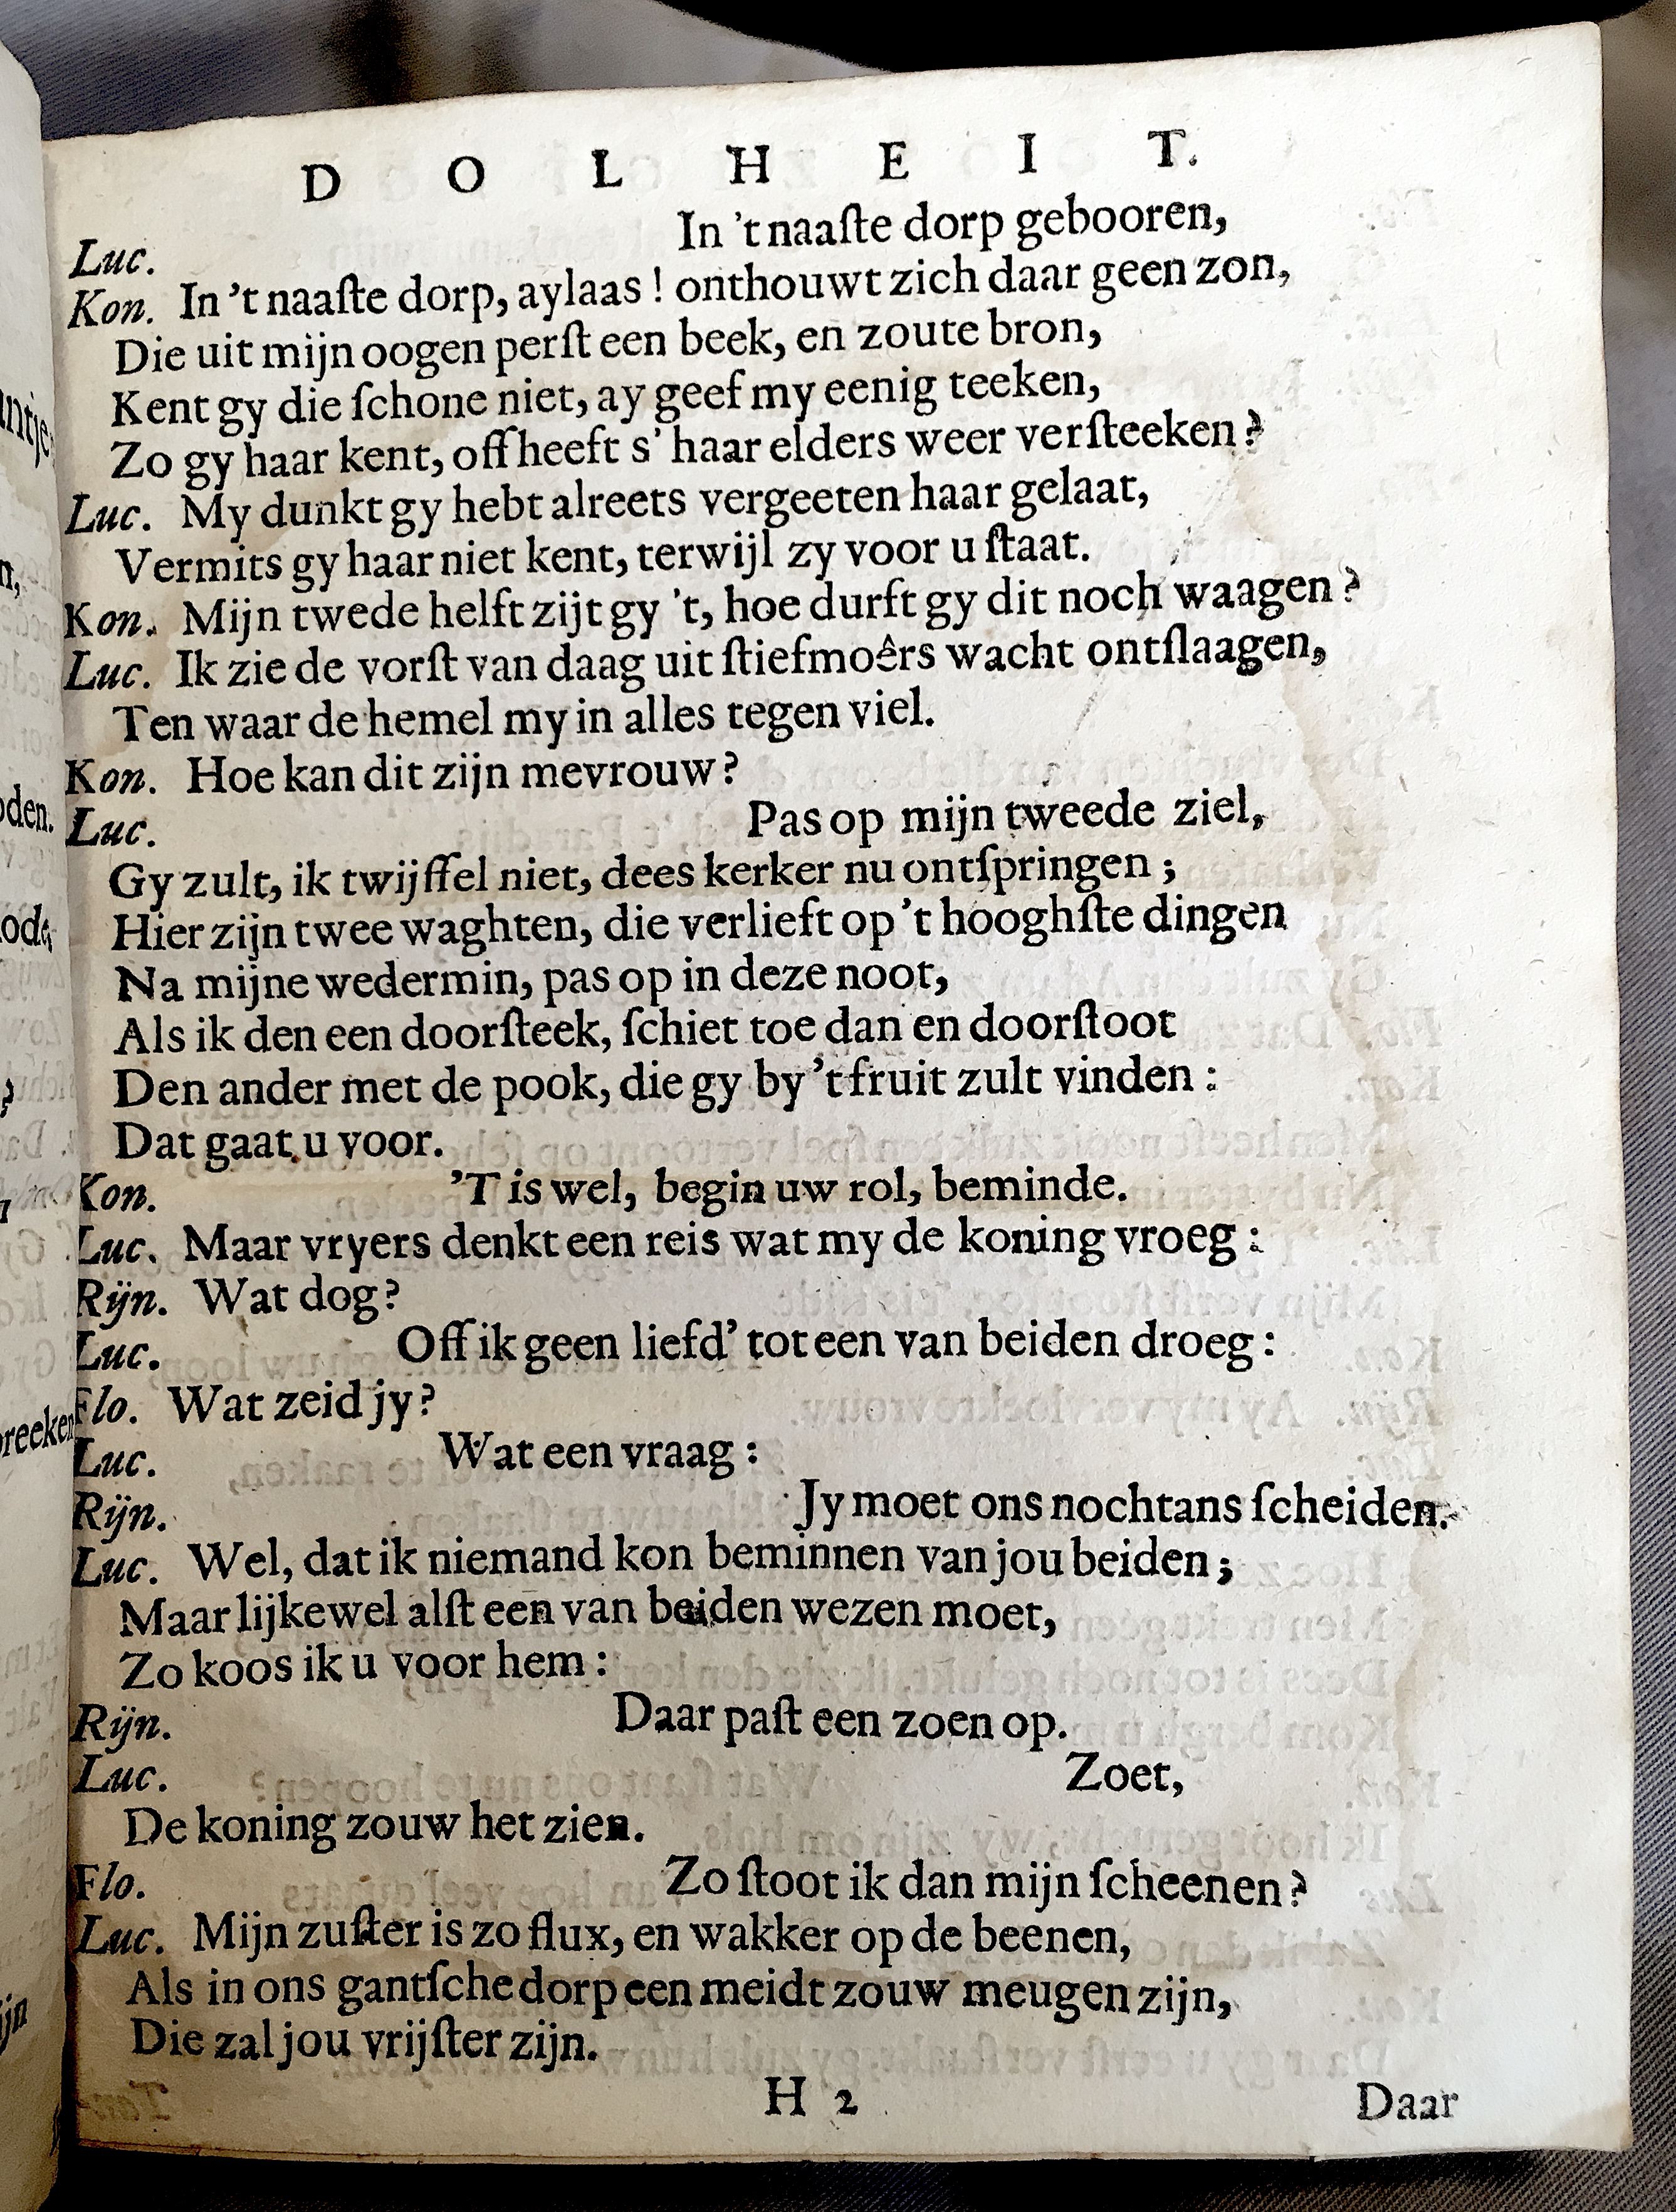 D O L H E I T.
Luc. In 't naaſte dorp gebooren,
Kon. In 't naaſte dorp, aylaas! onthouwt zich daar geen zon,
Die uit mijn oogen perſt een beek, en zoute bron,
Kent gy die ſchone niet, ay geef my eenig teeken,
Zo gy haar kent, off heeft s' haar elders weer verſteeken?
Luc. My dunkt gy hebt alreets vergeeten haar gelaat,
Vermits gy haar niet kent, terwijl zy voor u ſtaat.
Kon. Mijn twede helft zijt gy 't, hoe durft gy dit noch waagen?
Luc. Ik zie de vorſt van daag uit ſtiefmoêrs wacht ontſlaagen,
Ten waar de hemel my in alles tegen viel.
Kon. Hoe kan dit zijn mevrouw?
Luc. Pas op mijn tweede ziel,
Gy zult, ik twijffel niet, dees kerker nu ontſpringen;
Hier zijn twee waghten, die verlieft op 't hooghſte dingen
Na mijne wedermin, pas op in deze noot,
Als ik den een doorſteek, ſchiet toe dan en doorſtoot
Den ander met de pook, die gy by 't fruit zult vinden:
Dat gaat u voor.
Kon. 'T is wel, begin uw rol, beminde.
Luc. Maar vryers denkt een reis wat my de koning vroeg:
Rijn. Wat dog?
Luc. Off ik geen liefd' tot een van beiden droeg:
Flo. Wat zeid jy?
Luc. Wat een vraag:
Rijn. Jy moet ons nochtans ſcheiden.
Luc. Wel, dat ik niemand kon beminnen van jou beiden;
Maar lijkewel alſt een van beiden wezen moet,
Zo koos ik u voor hem:
Rijn. Daar paſt een zoen op.
Luc. Zoet,
De koning zouw het zien.
Flo. Zo ſtoot ik dan mijn ſcheenen?
Luc. Mijn zuſter is zo flux, en wakker op de beenen,
Als in ons gantſche dorp een meidt zouw meugen zijn,
Die zal jou vrijſter zijn.
H 2 Daar